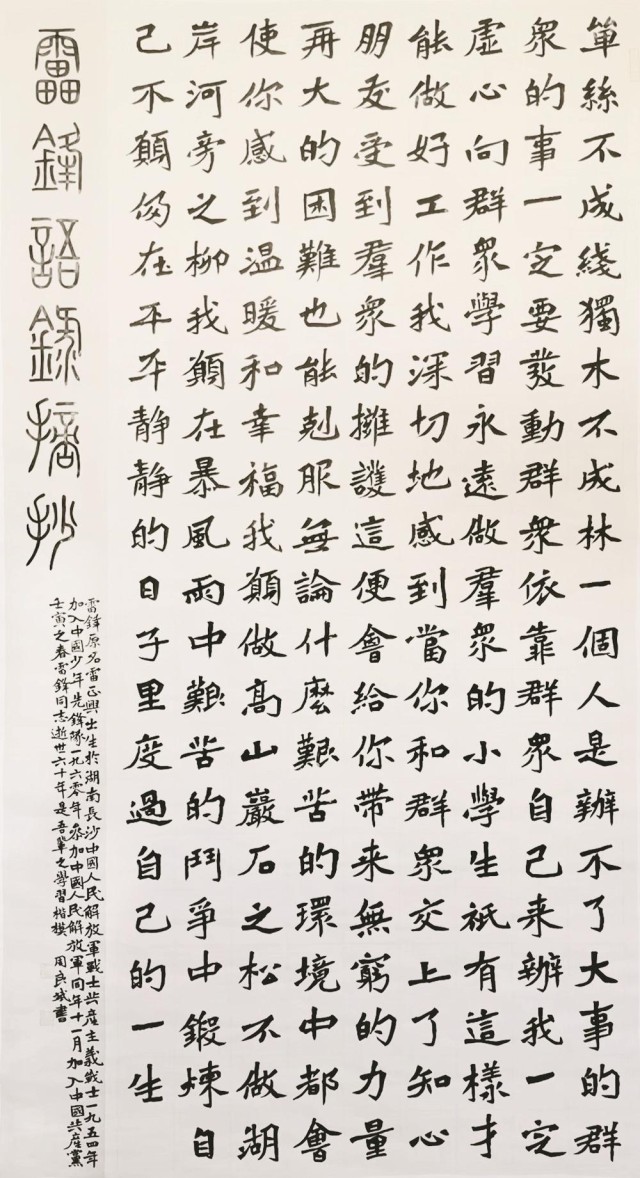 單絲不成綫獨木不成林一個人是辦不了大事的群
衆的事一定要發動群衆依靠群衆自己来辦我一定
虚心向群衆學習永遠做羣衆的小學生衹有這樣才
能做好工作我深切地感到當你和群衆交上了知心
朋友受到羣衆的擁護這便會給你帶来無窮的力量
再大的困難也能剋服無論什麽艱苦的環境中都會
使你感到温暖和幸福我願做高山巖石之松不做湖
岸河旁之柳我願在暴風雨中艱苦的鬥爭中鍛煉自
己不願在平平静静的日子里度過自己的一生
雷鋒語録摘抄
雷鋒原名雷正興出生於湖南長沙中國人民解放軍戰士共産主義戰士一九五四年
加入中國少年先鋒隊一九六零年参加中國人民解放軍同年十一月加入中國共産黨
壬寅之春雷鋒同志逝世六十年是吾輩之學習楷模 周良書